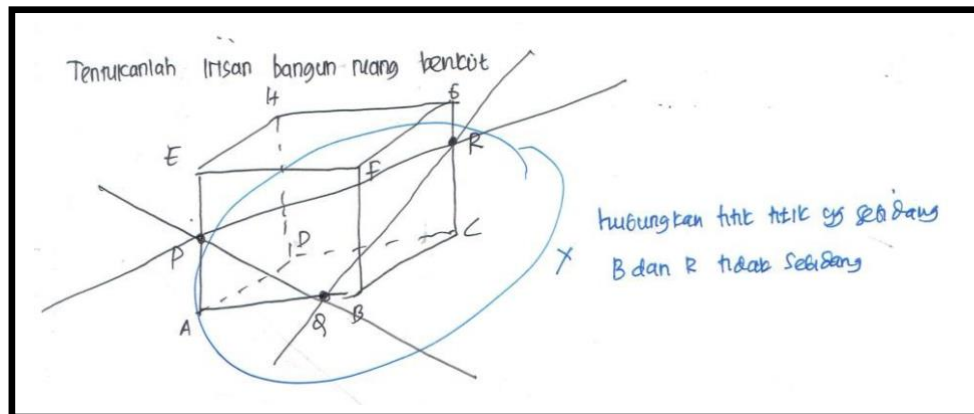 Tentukanlah Irisan bangun ruang berikut
H G
E F R
P D C
A Q B
hubungkan titik titik yg sebidang
B dan R tidak Sebidang